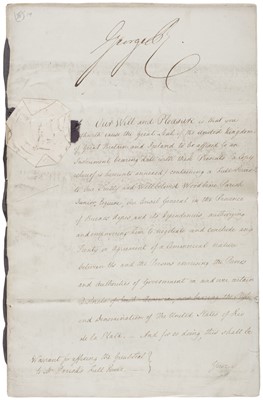 George R
Our Will and Pleasure is that you
forthwith cause the Great Seal of the United Kingdom
of Great Britain and Ireland to be affixed to an
Instrument bearing date with these Presents (a Copy
whereof is hereunto annexed) containing a Full Power
to Our Trusty and Well beloved Woodbine Parish
Junior, Esquire, Our Consul General in the Province
of Buenos Ayres and its Dependencies, authorizing
and empowering him to negotiate and conclude any
Treaty or Agreement of a Commercial nature
between Us and the Persons exercising the Powers
and Authorities of Government in and over
and Denomination of the United States of Rio
de la Plata. And for so doing, this shall be
Warrant for affixing the Great Seal
to Mr Parish's Full Power